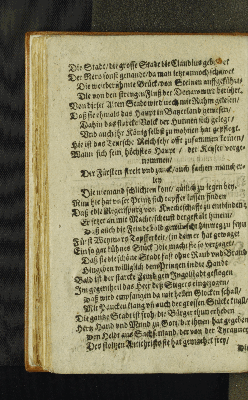 Die Stadt / die grosse Stadt die Claudius gebawet
Der Nero sonst genandt / da man jetzt annoch schawet
Die wunderschöne Brück / von Steinen auffgeführt /
Die von den strengen Fluß der Donaw wir berührt.
Von dieser Alten Stadt wird noch mit Ruhm gelesen /
Daß sie ehmals das Haupt in Bayerland gewesen /
Dahin das starcke Volck der Hunnen sich gelegt /
Und auch ihr König selbst zu wohnen hat gepflegt.
Hie ist das Teutsche Reich sehr offt zusammen kommen /
Wann sich sein höchstes Haupt / der Keyser vorge-
nommen /
Der Fürsten Recht und zuck / auch sachen mancher-
ley
Die niemand schlichten kont / gütlich zu legen bey.
Nun hie hat unser Printz sich tapffer lassen finden
Daß edle Regenspurg von Knechtschafft zu entbinden /
Er setzt an mit Macht / ist und dergestalt
Daß auch die Feinde bald gemüßt hinweg zu
Fürst Weymars Tapfferkeit / in deme er hat gewaget
Ein so gar kühnes Stück / die macht sie so verzaget /
Daß sie die schöne Stadt fast ohne Raub und Brand
Hingaben williglich dem Printzen in die Hand
Bald ist der starcke Zeug gen Ingolstadt geflogen
Im gegentheil das Heer deß Siegers eingezogen /
Daß wird empfangen da mit hellen Glocken schall /
Mit Paucken klang und auch der grossen Stücke knall /
Die gantze Stadt ist froh / die Bürger thun erheben
Hertz Hand und Mund zu Gott / der ihnen hat gegeben
Den Held aus Sachsenland / der von der Tyranney
Des stoltzen Antichrists sie hat gemachet frey /